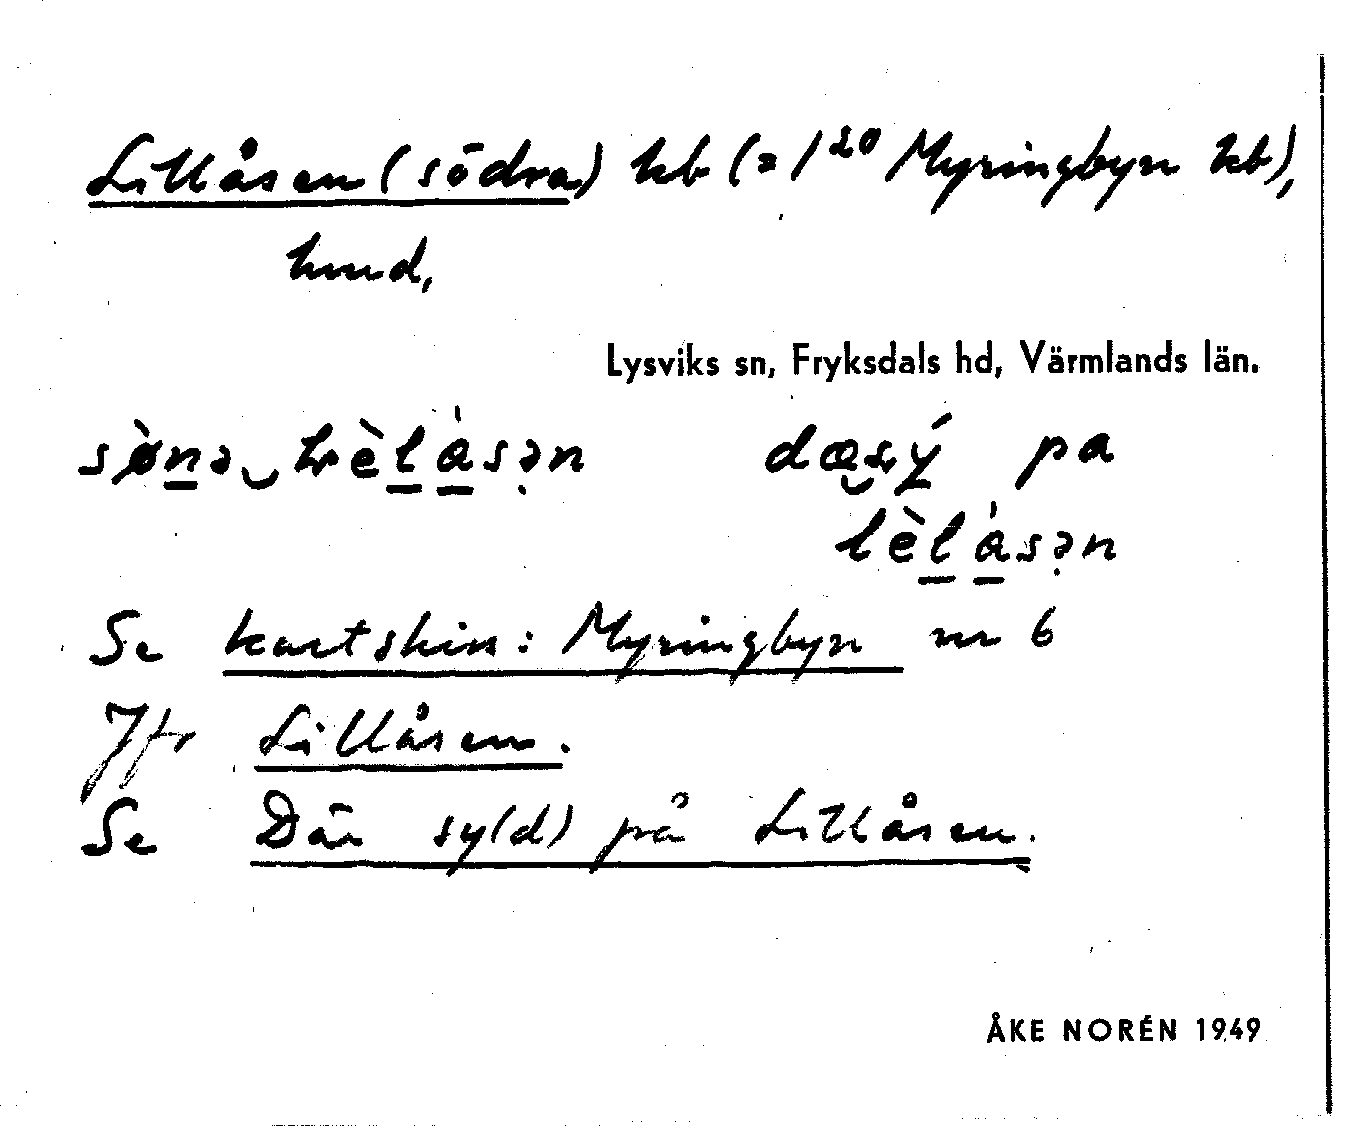 Lillåsen (södra) kb (= 1²⁰ Myringbyn kb),
hmd,
Lysviks sn, Fryksdals hd, Värmlands län.
pa
Se kartskiss: Myringbyn nr 6
Jfr Lillåsen.
Se Där sy(d) på Lillåsen.
ÅKE NORÉN 1949